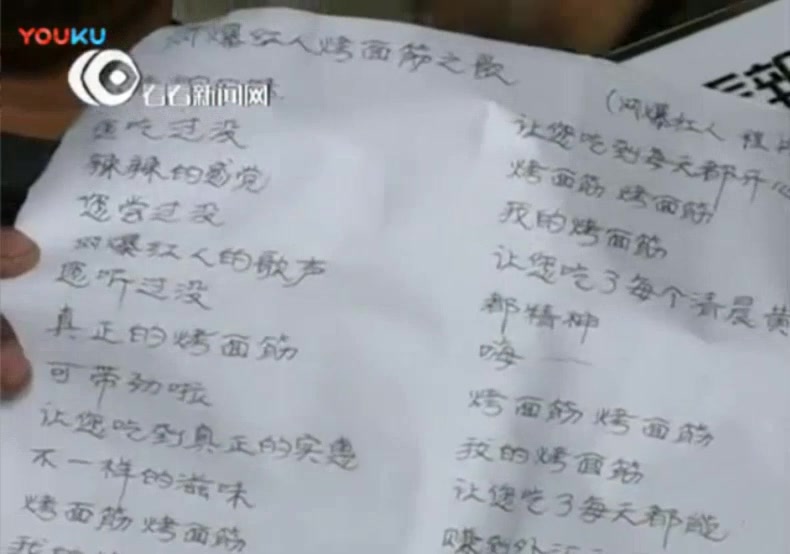 YOUKU
看看新闻网
网爆红人烤面筋之歌
您吃过没
辣辣的感觉
您尝过没
网爆红人的歌声
您听过没
真正的烤面筋
可带劲啦
让您吃到真正的实惠
不一样的滋味
烤面筋烤面筋
我的
(网爆红人 程
让您吃到每天都开心
烤面筋 烤面筋
我的烤面筋
让您吃了每个清晨黄
都精神
嗨——
烤面筋烤面筋
我的烤面筋
让您吃了每天都能
赚到外